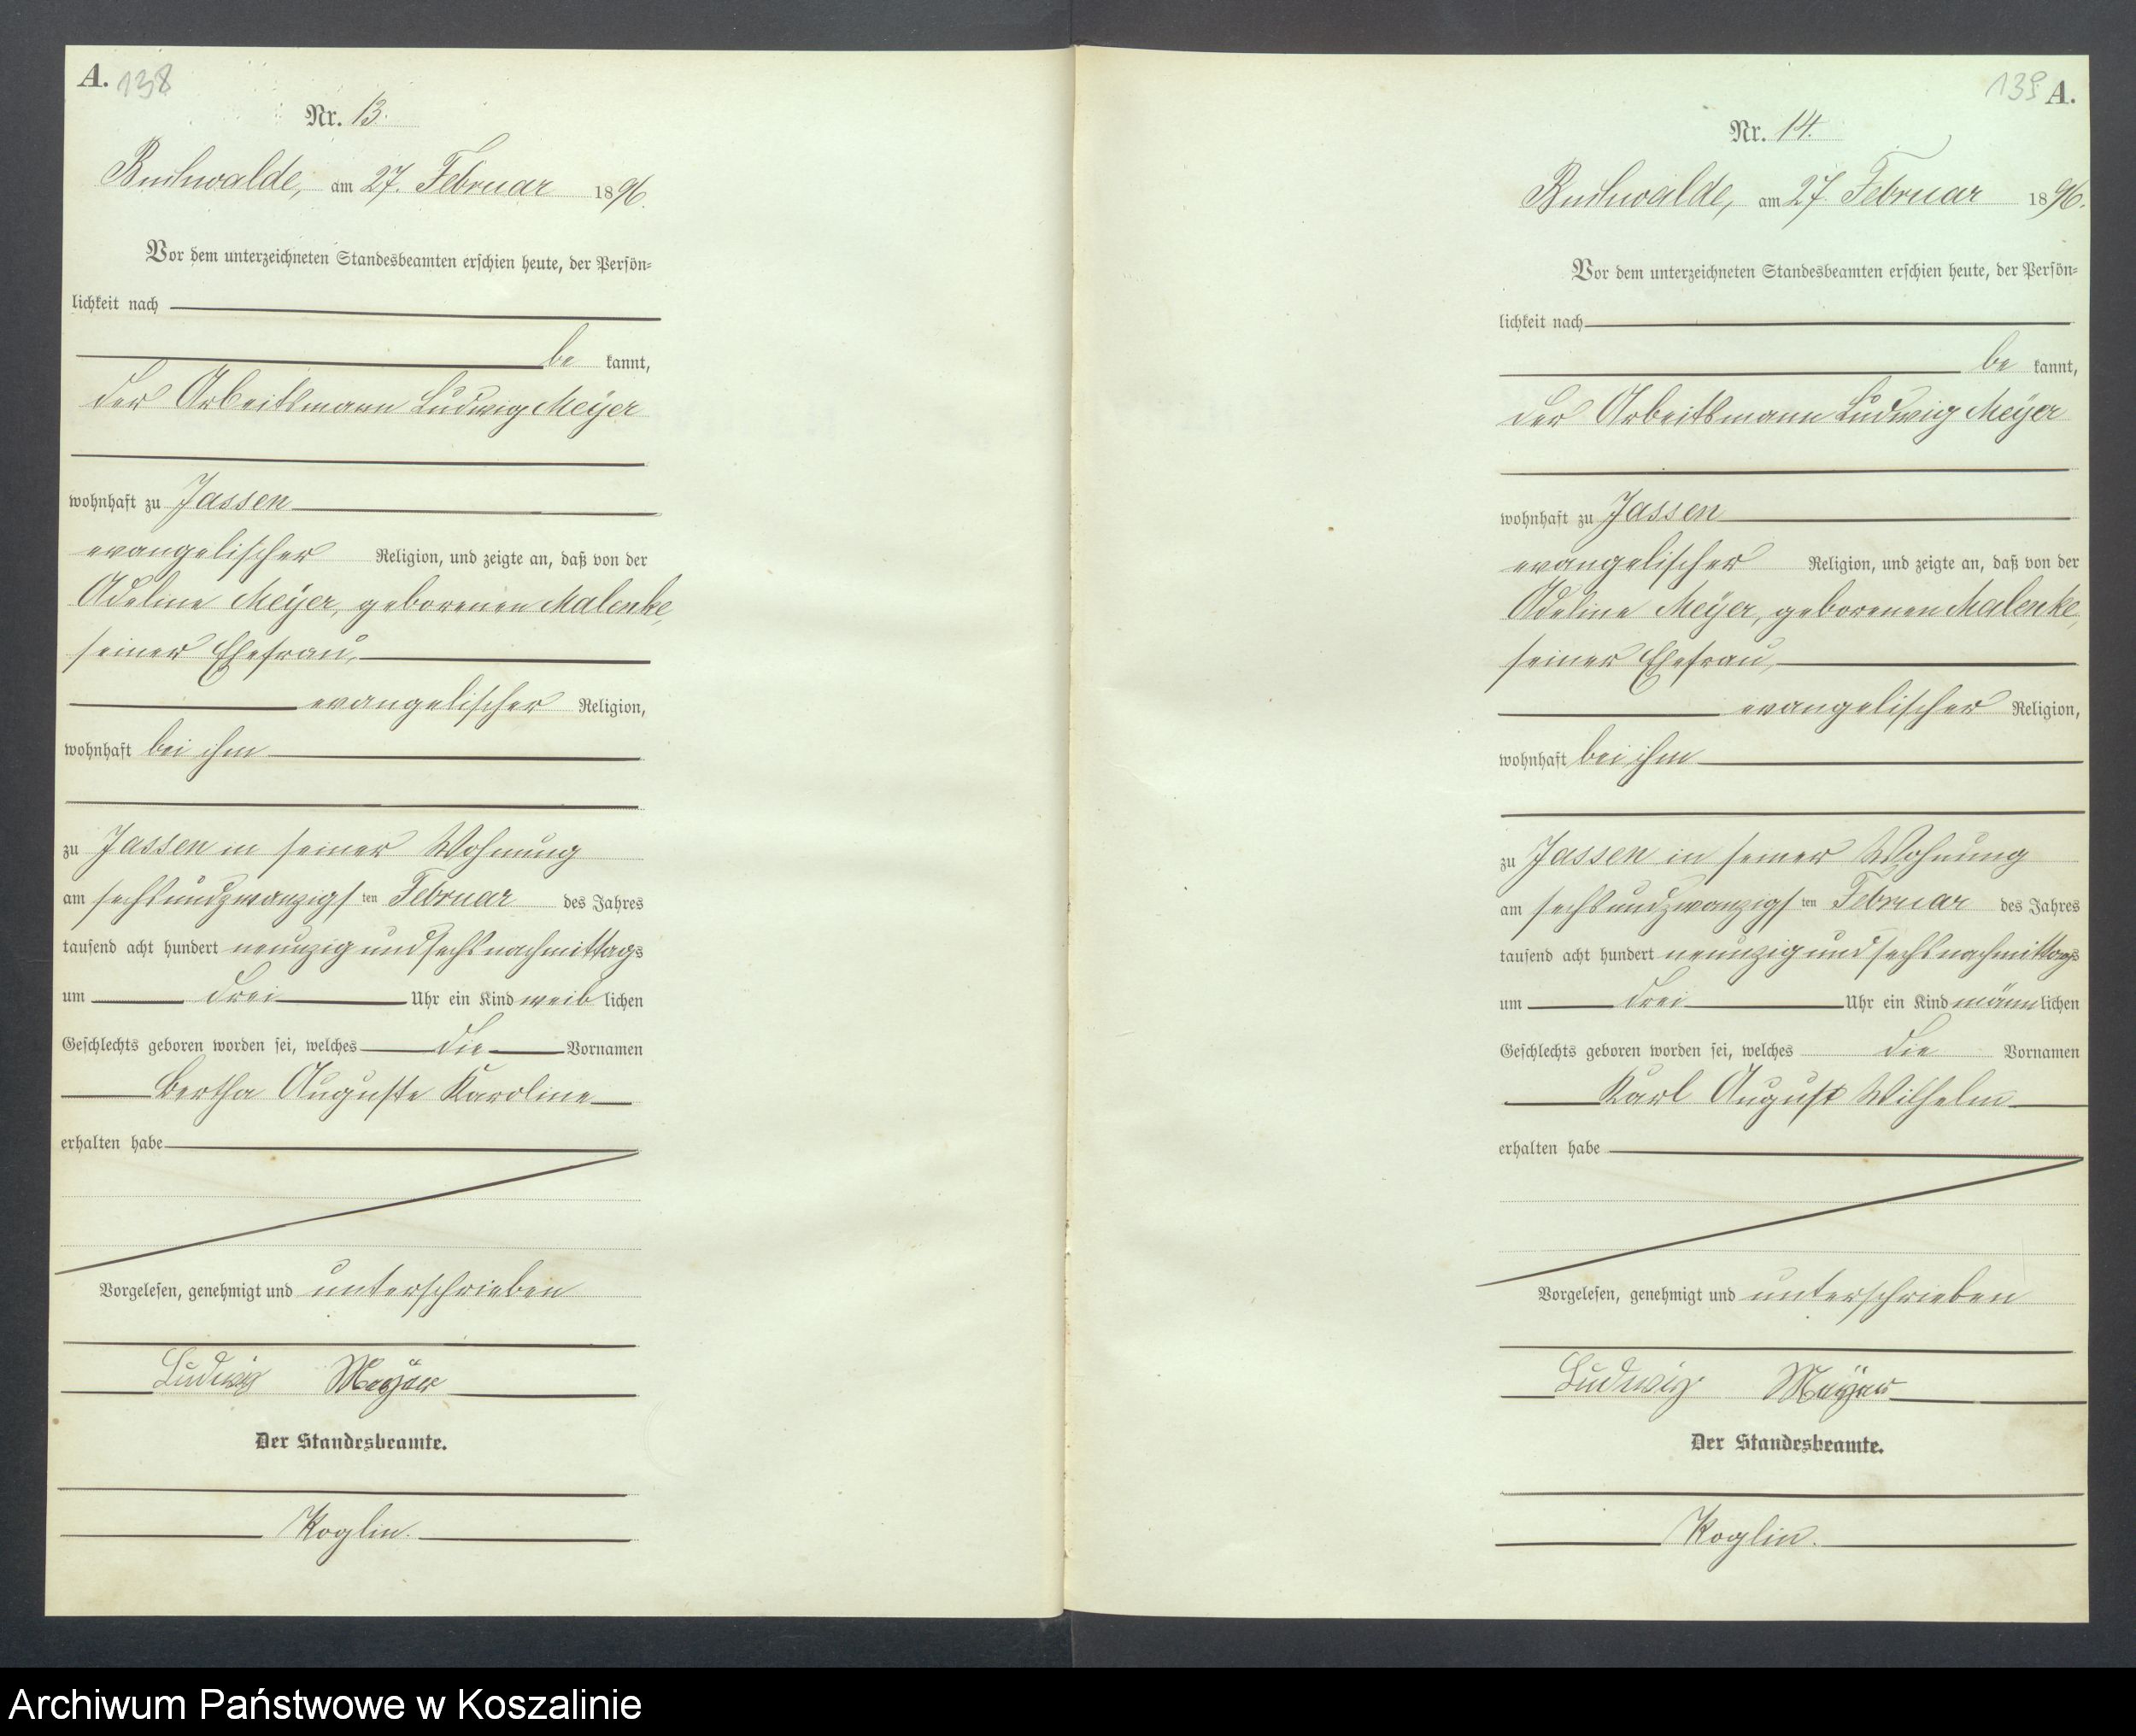 A. 138
Nr. 13.
Buchwalde, am 27. Februar 1896.
Vor dem unterzeichneten Standesbeamten erschien heute, der Persön=
lichkeit nach
be kannt,
der Arbeitsmann Ludwig Meÿer
wohnhaft zu Jassen
evangelischer Religion, und zeigte an, daß von der
Adeline Meÿer, geborenen Malenke,
seiner Ehefrau,
evangelischer Religion,
wohnhaft bei ihm
zu Jassen in seiner Wohnung
am sechsundzwanzigsten Februar des Jahres
tausend acht hundert neunzig und sechs nachmittags
um drei Uhr ein Kind weiblichen
Geschlechts geboren worden sei, welches die Vornamen
Bertha Auguste Karoline
erhalten habe
Vorgelesen, genehmigt und unterschrieben
Ludwig Meÿer
Der Standesbeamte.
Koglin.
139 A.
Nr. 14.
Buchwalde, am 27. Februar 1896.
Vor dem unterzeichneten Standesbeamten erschien heute, der Persön=
lichkeit nach
be kannt,
der Arbeitsmann Ludwig Meÿer
wohnhaft zu Jassen
evangelischer Religion, und zeigte an, daß von der
Adeline Meÿer, geborenen Malenke,
seiner Ehefrau,
evangelischer Religion,
wohnhaft bei ihm
zu Jassen in seiner Wohnung
am sechsundzwanzigsten Februar des Jahres
tausend acht hundert neunzig und sechs nachmittags
um drei Uhr ein Kind männlichen
Geschlechts geboren worden sei, welches die Vornamen
Karl August Wilhelm
erhalten habe
Vorgelesen, genehmigt und unterschrieben
Ludwig Meÿer
Der Standesbeamte.
Koglin.
Archiwum Państwowe w Koszalinie